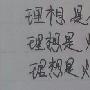 理想是
理想是火
理想是火